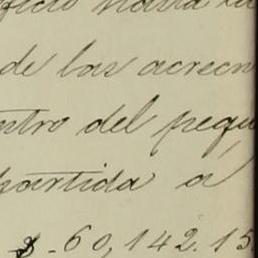 ficio hasta la
de las acreen
ntro del pequ
partida á
$ - 60,142.15